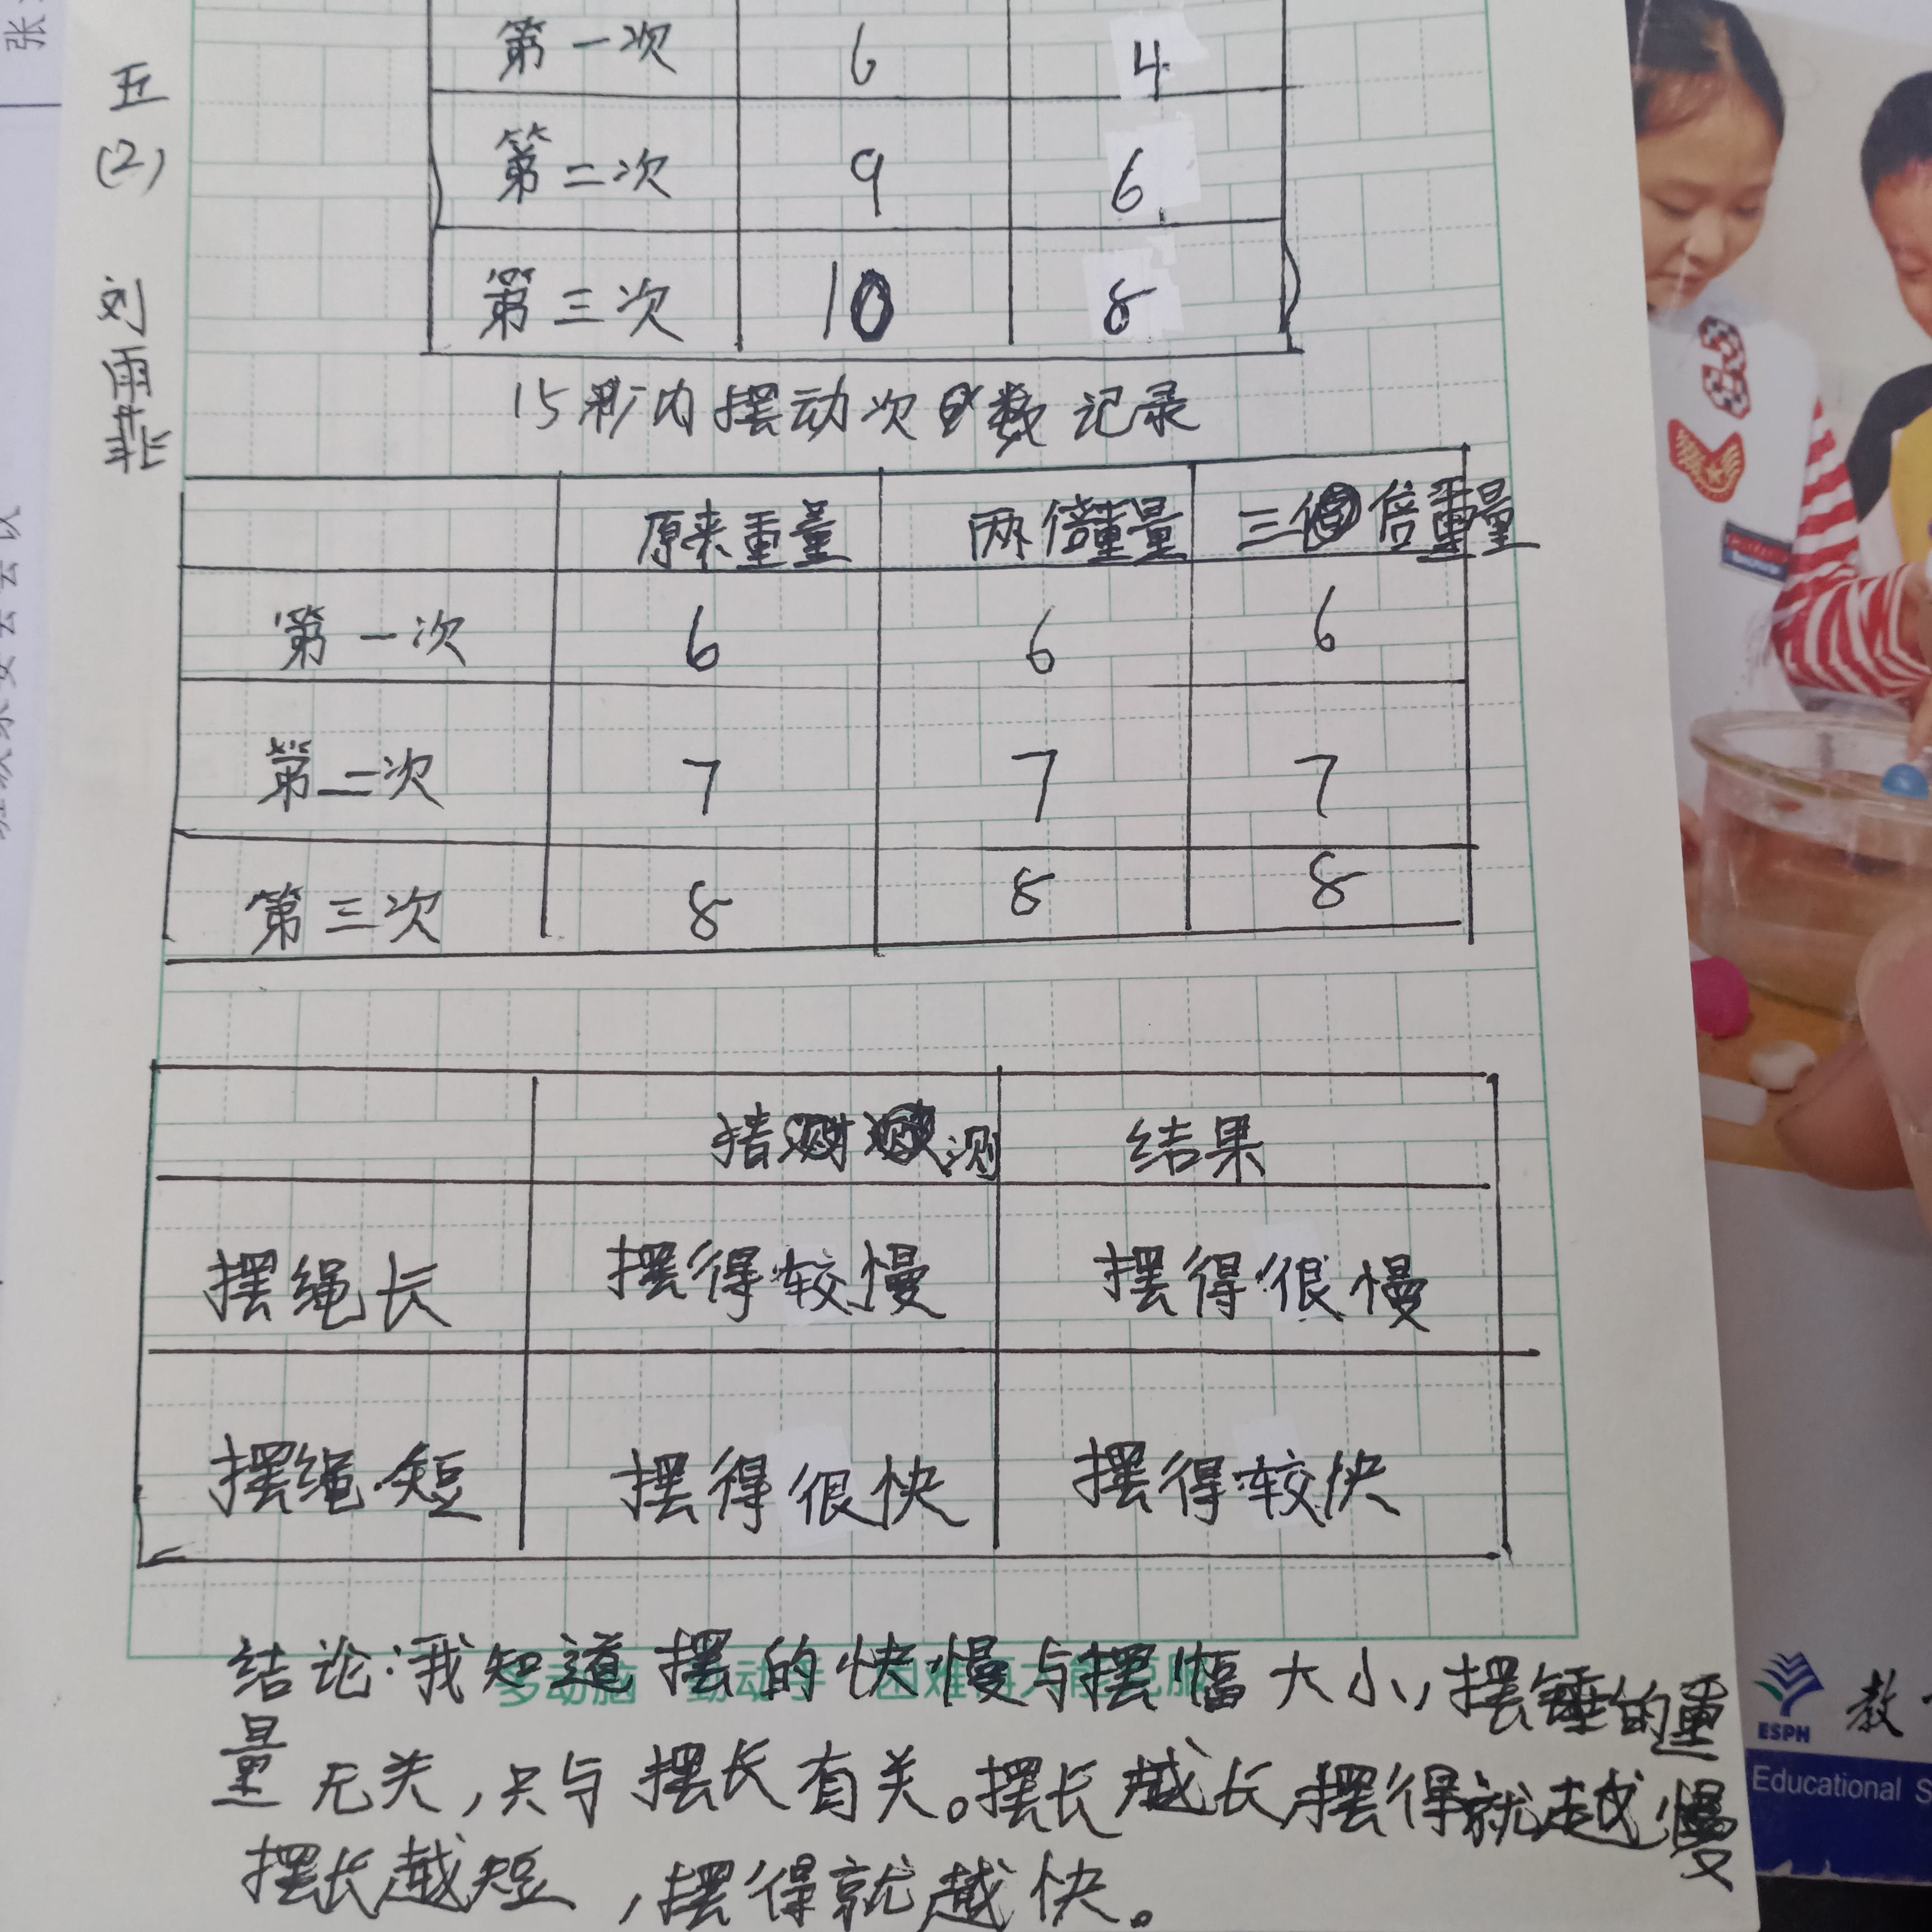 张
五
(2)
刘雨菲
第一次 6 4
第二次 9 6
第三次 10 8
15秒内摆动次数记录
原来重量 两倍重量 三倍重量
第一次 6 6 6
第二次 7 7 7
第三次 8 8 8
猜测 结果
摆绳长 摆得较慢 摆得很慢
摆绳短 摆得很快 摆得较快
结论:我知道摆的快慢与摆幅大小,摆锤的重
量无关,只与摆长有关。摆长越长摆得就越慢
摆长越短,摆得就越快。
多动脑 勤动手 困难再大能克服
ESPH 教
Educational S